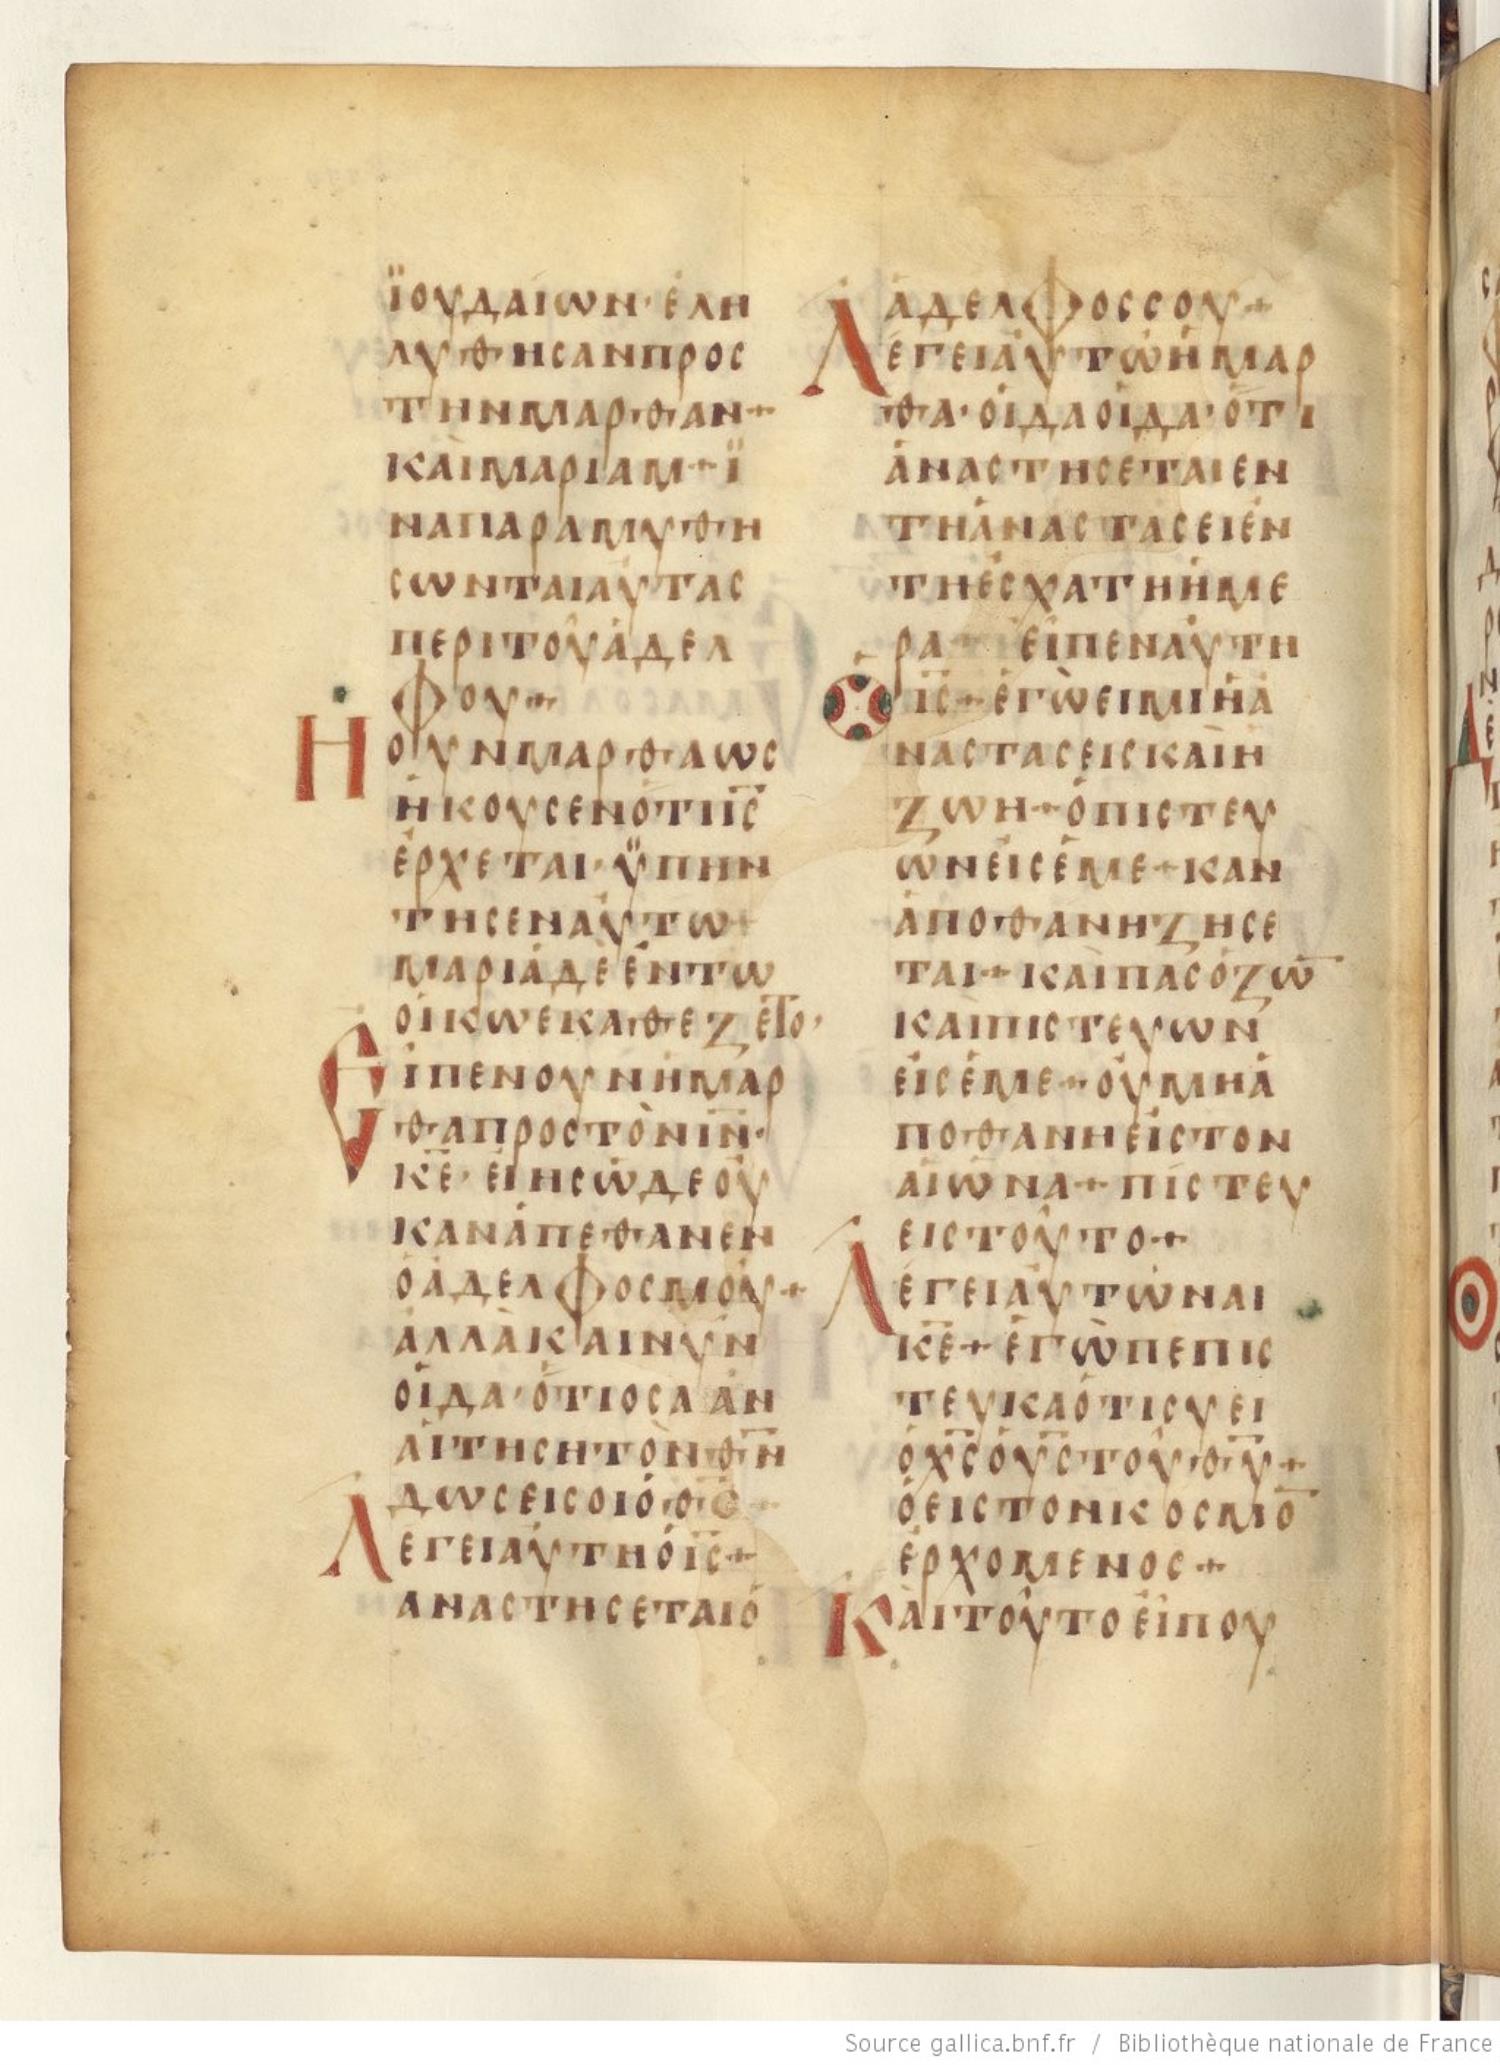 ΪΟΥΔΑΙΩΝ· ΕΛΗ
ΛΥΘΗCΑΝΠΡΟC
ΤΗΝΜΑΡΘΑΝ+
ΚΑΙΜΑΡΙΑΜ+Ϊ
ΝΑΠΑΡΑΜΥΘΗ
CΩΝΤΑΙΑΥΤΑC
ΠΕΡΙΤΟΥΑΔΕΛ
ΦΟΥ+
Η ΟΥΝΜΑΡΘΑΩC
ΗΚΟΥCΕΝΟΤΙΙ̅C̅
ΕΡΧΕΤΑΙ·ΫΠΗΝ
ΤΗCΕΝΑΥΤΩ+
ΜΑΡΙΑΔΕΕΝΤΩ
ΟΙΚΩΕΚΑΘΕΖΕΤΟ·
ΕΙΠΕΝΟΥΝΗΜΑΡ
ΘΑΠΡΟCΤΟΝΙ̅Ν̅·
Κ̅Ε̅·ΕΙΗCΩΔΕΟΥ
ΚΑΝΑΠΕΘΑΝΕΝ
ΟΑΔΕΛΦΟCΜΟΥ+
ΑΛΛΑΚΑΙΝΥΝ
ΟΙΔΑ·ΟΤΙΟCΑΑΝ
ΑΙΤΗCΗΤΟΝΘ̅Ν̅
ΔΩCΕΙCΟΙΟΘ̅C̅+
ΛΕΓΕΙΑΥΤΗΟΙ̅C̅+
ΑΝΑCΤΗCΕΤΑΙΟ
ΑΔΕΛΦΟCCΟΥ+
ΛΕΓΕΙΑΥΤΩΗΜΑΡ
ΘΑ·ΟΙΔΑΟΙΔΑ·ΟΤΙ
ΑΝΑCΤΗCΕΤΑΙΕΝ
ΤΗΑΝΑCΤΑCΕΙΕΝ
ΤΗΕCΧΑΤΗΗΜΕ
ΡΑ+ ΕΙΠΕΝΑΥΤΗ
Ι̅C̅+ΕΓΩΕΙΜΙΗΑ
ΝΑCΤΑCΕΙCΚΑΙΗ
ΖΩΗ+ΟΠΙCΤΕΥ
ΩΝΕΙCΕΜΕ+ΚΑΝ
ΑΠΟΘΑΝΗΖΗCΕ
ΤΑΙ+ΚΑΙΠΑCΟΖΩ̅
ΚΑΙΠΙCΤΕΥΩΝ
ΕΙCΕΜΕ+ΟΥΜΗΑ
ΠΟΘΑΝΗΕΙCΤΟΝ
ΑΙΩΝΑ+ΠΙCΤΕΥ
ΕΙCΤΟΥΤΟ+
ΛΕΓΕΙΑΥΤΩΝΑΙ
Κ̅Ε̅+ΕΓΩΠΕΠΙC
ΤΕΥΚΑΟΤΙCΥΕΙ
ΟΧ̅C̅ΟΥ̅C̅ΤΟΥΘ̅Υ̅+
ΟΕΙCΤΟΝΚΟCΜΟ̅
ΕΡΧΟΜΕΝΟC+
ΚΑΙΤΟΥΤΟΕΙΠΟΥ
Source gallica.bnf.fr / Bibliothèque nationale de France